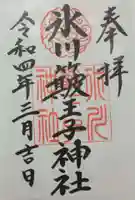 奉拝
氷川簸王子神社
令和四年三月吉日